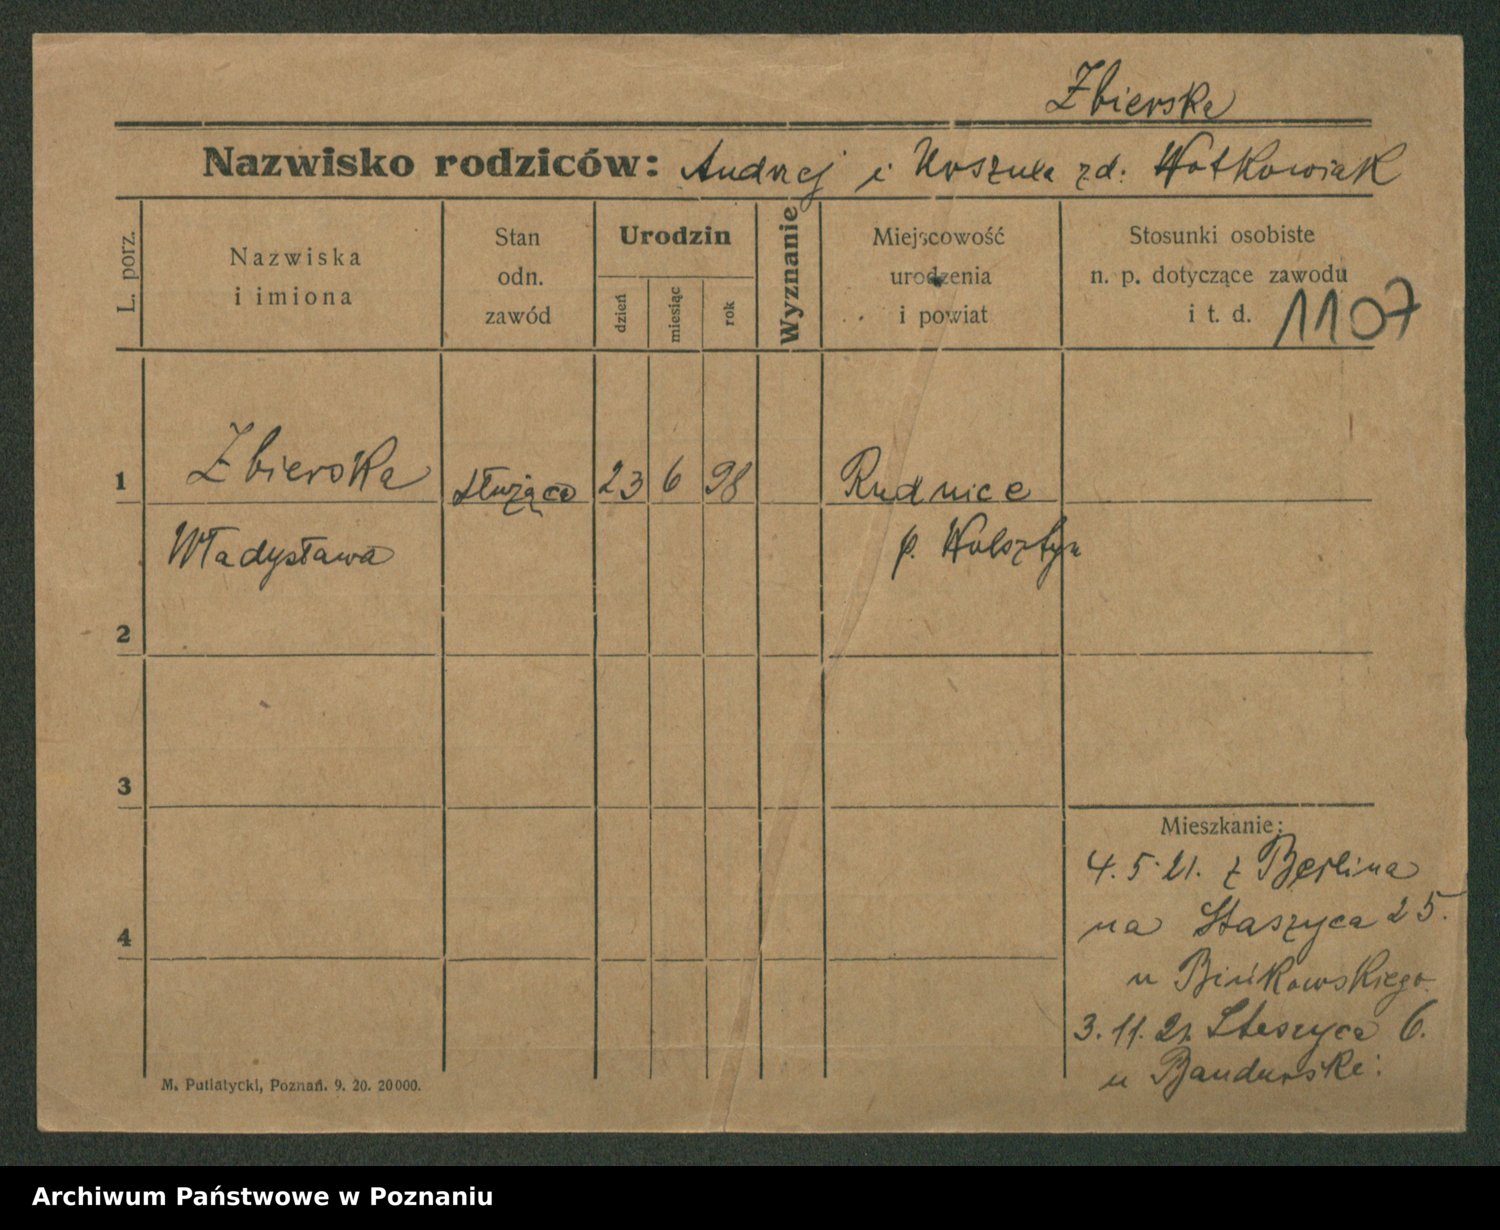 Zbierska
Nazwisko rodziców: Andrzej i Urszula zd. Wotkowiak
L. porz.
Nazwiska
i imiona
Stan
odn.
zawód
Urodzin
dzień
miesiąc
rok
Wyznanie
Miejscowość
urodzenia
i powiat
Stosunki osobiste
n. p. dotyczące zawodu
i t. d.
1107
1 Zbierska służąca 23 6 98 Rudnice
Władysława p. Wolsztyn
2
3
4
Mieszkanie:
4.5.21. z Berlina
na Staszyca 25.
u Bińkowskiego
3.11.21. Staszyca 6.
u Bandurski.
M. Putiatycki, Poznań. 9. 20. 20000.
Archiwum Państwowe w Poznaniu